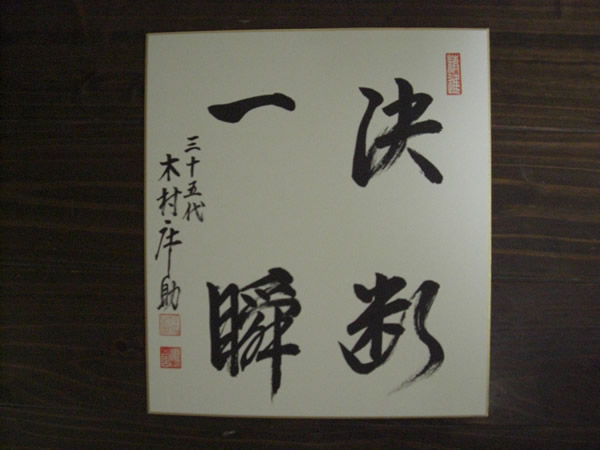 決断
一瞬
三十五代
木村庄助